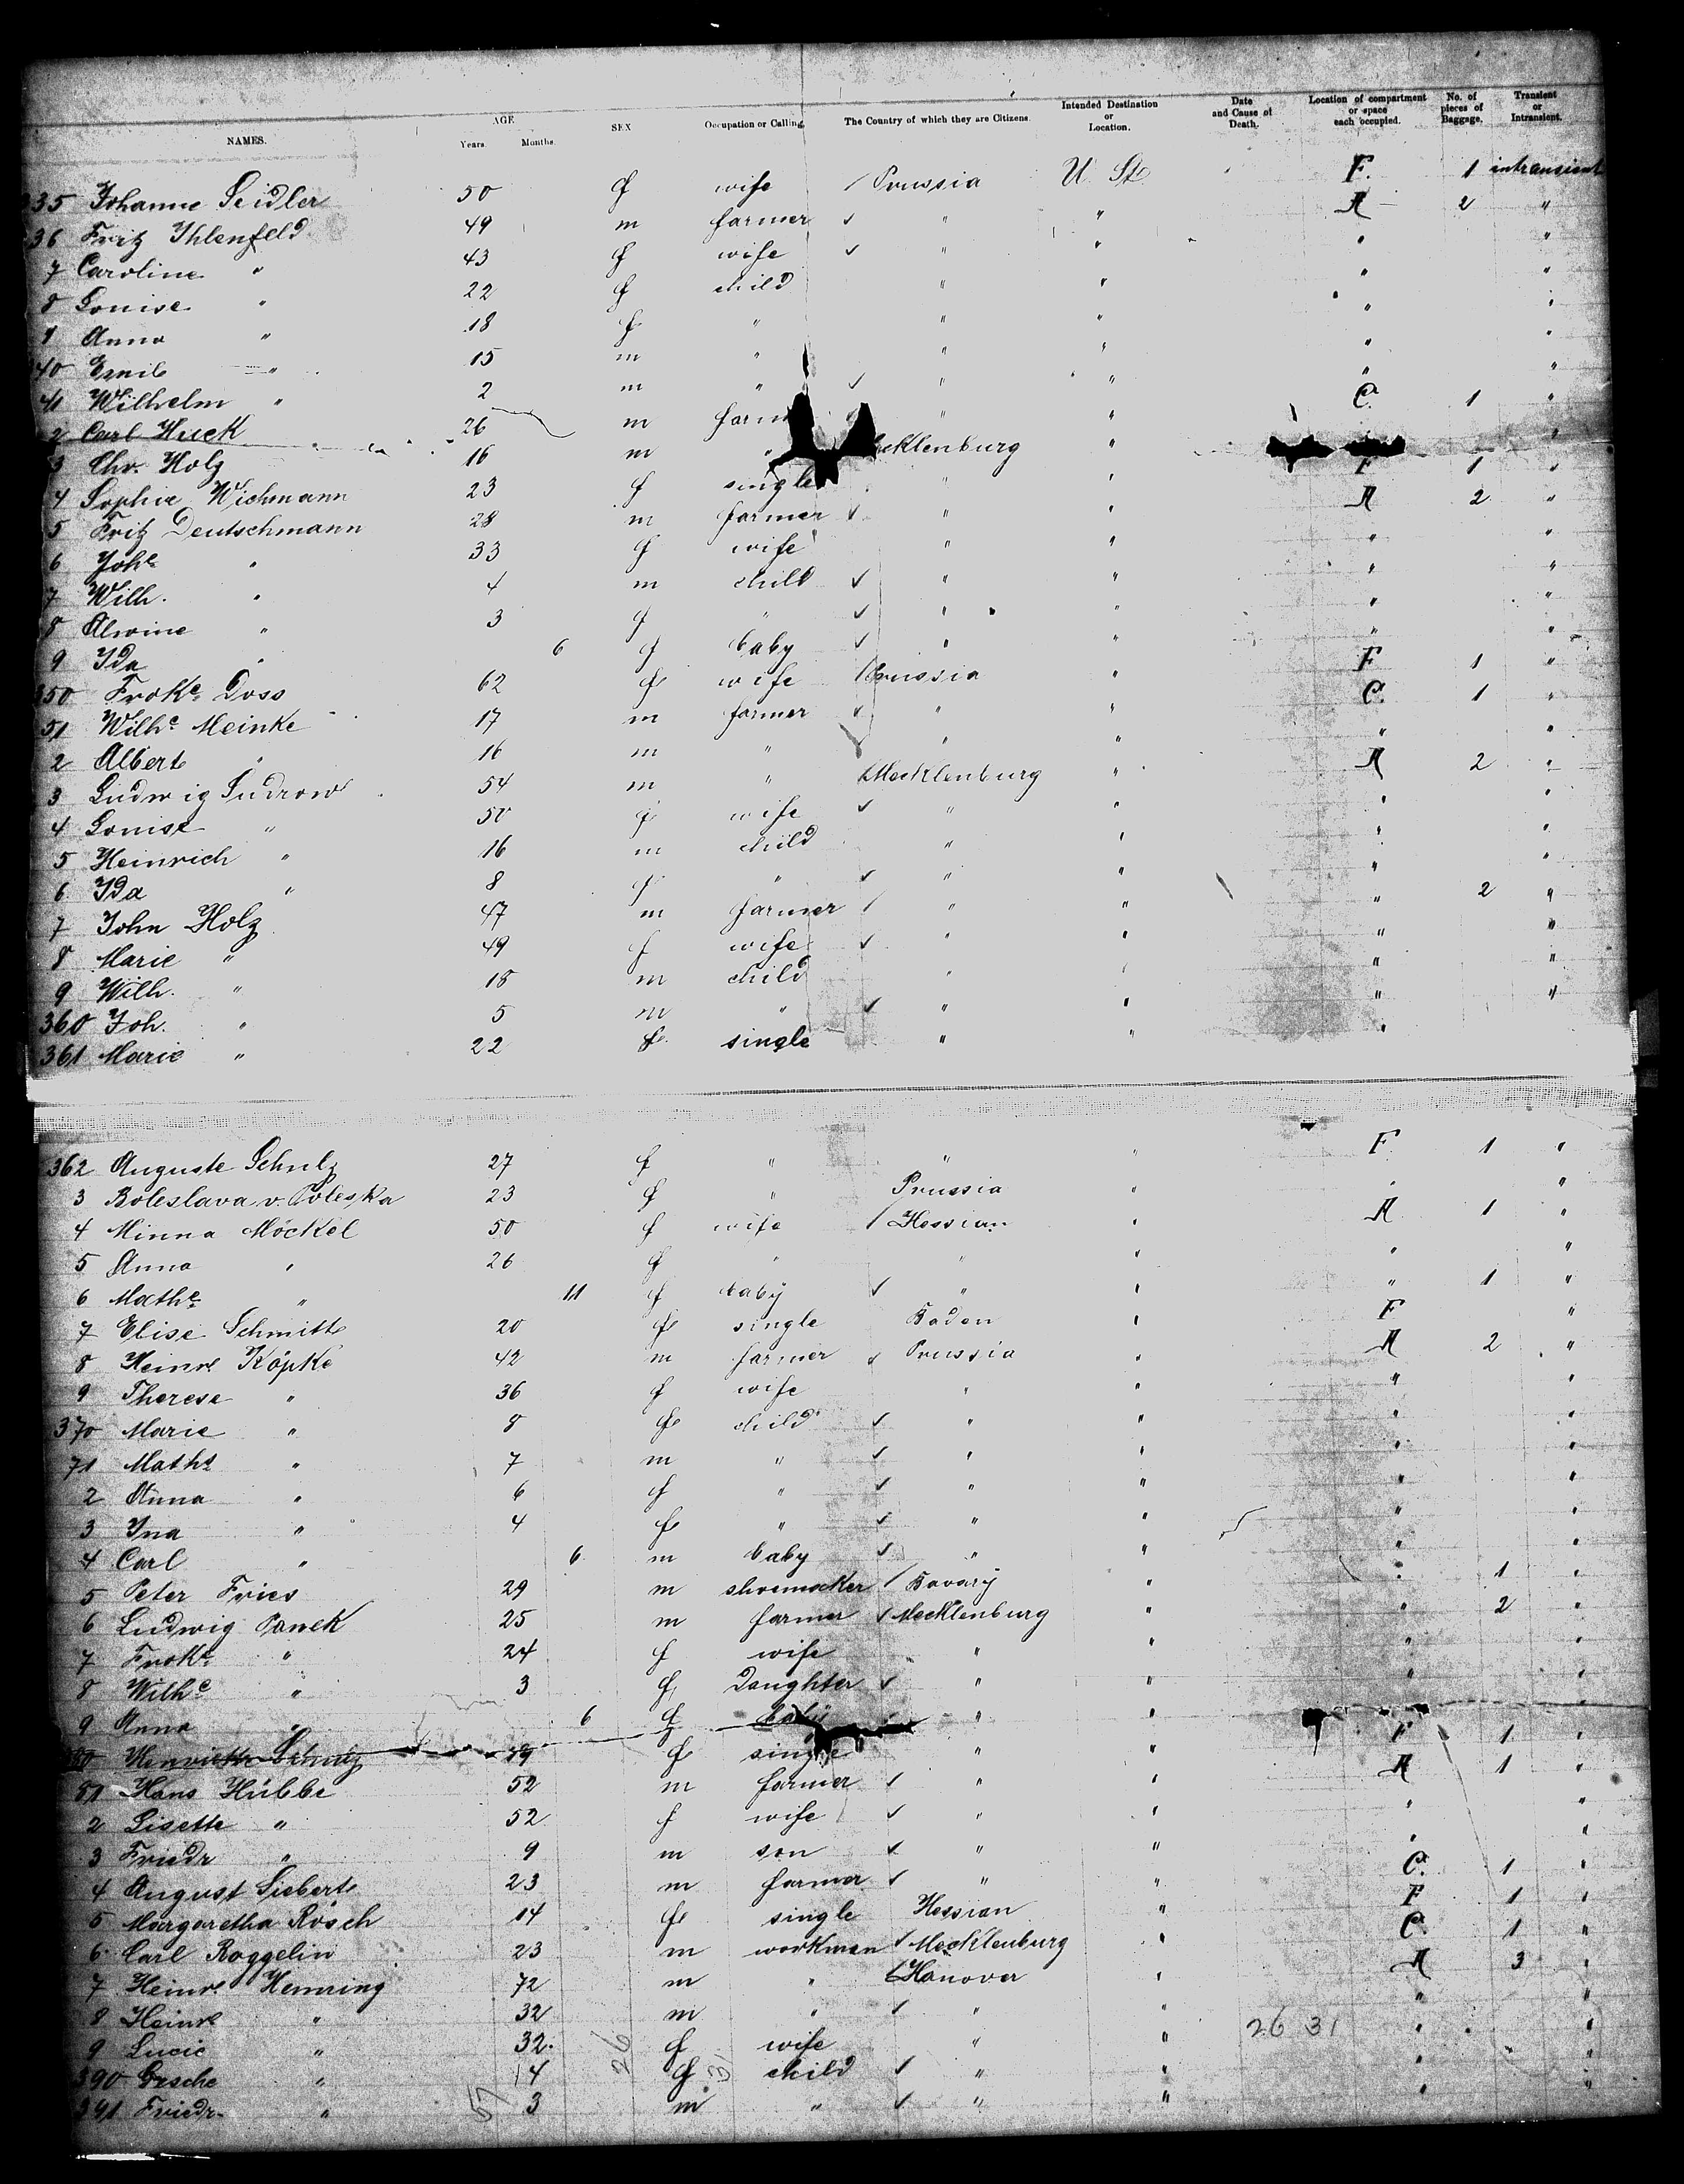 NAMES. AGE Years. Months. SEX Occupation or Calling. The Country of which they are Citizens. Intended Destination or Location. Date and Cause of Death. Location of compartment or space each occupied. No. of pieces of Baggage. Transient or Intransient.
335 Johanne Seidler 50 f wife Prussia U St. F. 1 intransient
36 Fritz Ihlenfeld 49 m farmer " " A 2 "
7 Caroline " 43 f wife " " " "
8 Louise " 22 f child " " " "
9 Anna " 18 f " " " " "
40 Emil " 15 m " " " " "
41 Wilhelm " 2 m " " " " "
2 Carl Huck 26 m farm " " C. 1 "
3 Chr. Holz 16 m " ecklenburg " "
4 Sophie Wichmann 23 f single " " F 1 "
5 Fritz Deutschmann 28 m farmer " " A 2 "
6 Johe " 33 f wife " " " "
7 Wilh. " 4 m child " " " "
8 Alwine " 3 f " " " " "
9 Ida " 6 f baby " " " "
350 Frdke Doss 62 f wife Prussia " F 1 "
51 Wilhe Meinke 17 m farmer " " C. 1 "
2 Albert " 16 m " " " " "
3 Ludwig Sudrow 54 m " Mecklenburg " A 2 "
4 Louise " 50 f wife " " " "
5 Heinrich " 16 m child " " " "
6 Ida " 8 f " " " " "
7 John Holz 47 m farmer " " " 2 "
8 Marie " 49 f wife " " " "
9 Wilh. " 18 m child " " " "
360 Joh. " 5 m " " " " "
361 Marie " 22 f single " " "
362 Auguste Schulz 27 f " " " F. 1 "
3 Boleslava v. Poleska 23 f " Prussia " " "
4 Minna Möckel 50 f wife Hessian " A 1 "
5 Anna " 26 f " " " " "
6 Mathe " 11 f baby " " " 1 "
7 Elise Schmitt 20 f single Baden " F "
8 Heinr. Köpke 42 m farmer Prussia " A 2 "
9 Therese " 36 f wife " " " "
370 Marie " 8 f child " " " "
71 Maths " 7 m " " " " "
2 Anna " 6 f " " " " "
3 Ina " 4 f " " " " "
4 Carl " 6 m baby " " " "
5 Peter Fries 29 m shoemacker Bavary " " 1 "
6 Ludwig Panek 25 m farmer Mecklenburg " " 2 "
7 Frdke " 24 f wife " " " "
8 Wilhe " 3 f Daughter " " " "
9 Anna " 6 f baby " " "
Henriette Schulz 19 f single " " F 1 "
81 Hans Hübbe 52 m farmer " " A 1 "
2 Lisette " 52 f wife " " " "
3 Friedr " 9 m son " " " "
4 August Siebert 23 m farmer " " C. 1 "
5 Margaretha Rösch 14 f single Hessian " F 1 "
6 Carl Roggelin 23 m workman Mecklenburg " C. 1 "
7 Heinr. Henning 72 m " Hanover " A 3 "
8 Heinr " 32 m " " " " "
9 Lucie " 32. f wife " " 26 31 " "
390 Gesche " 14 f child " " " "
391 Friedr. " 3 m " " " " "
57 26 31